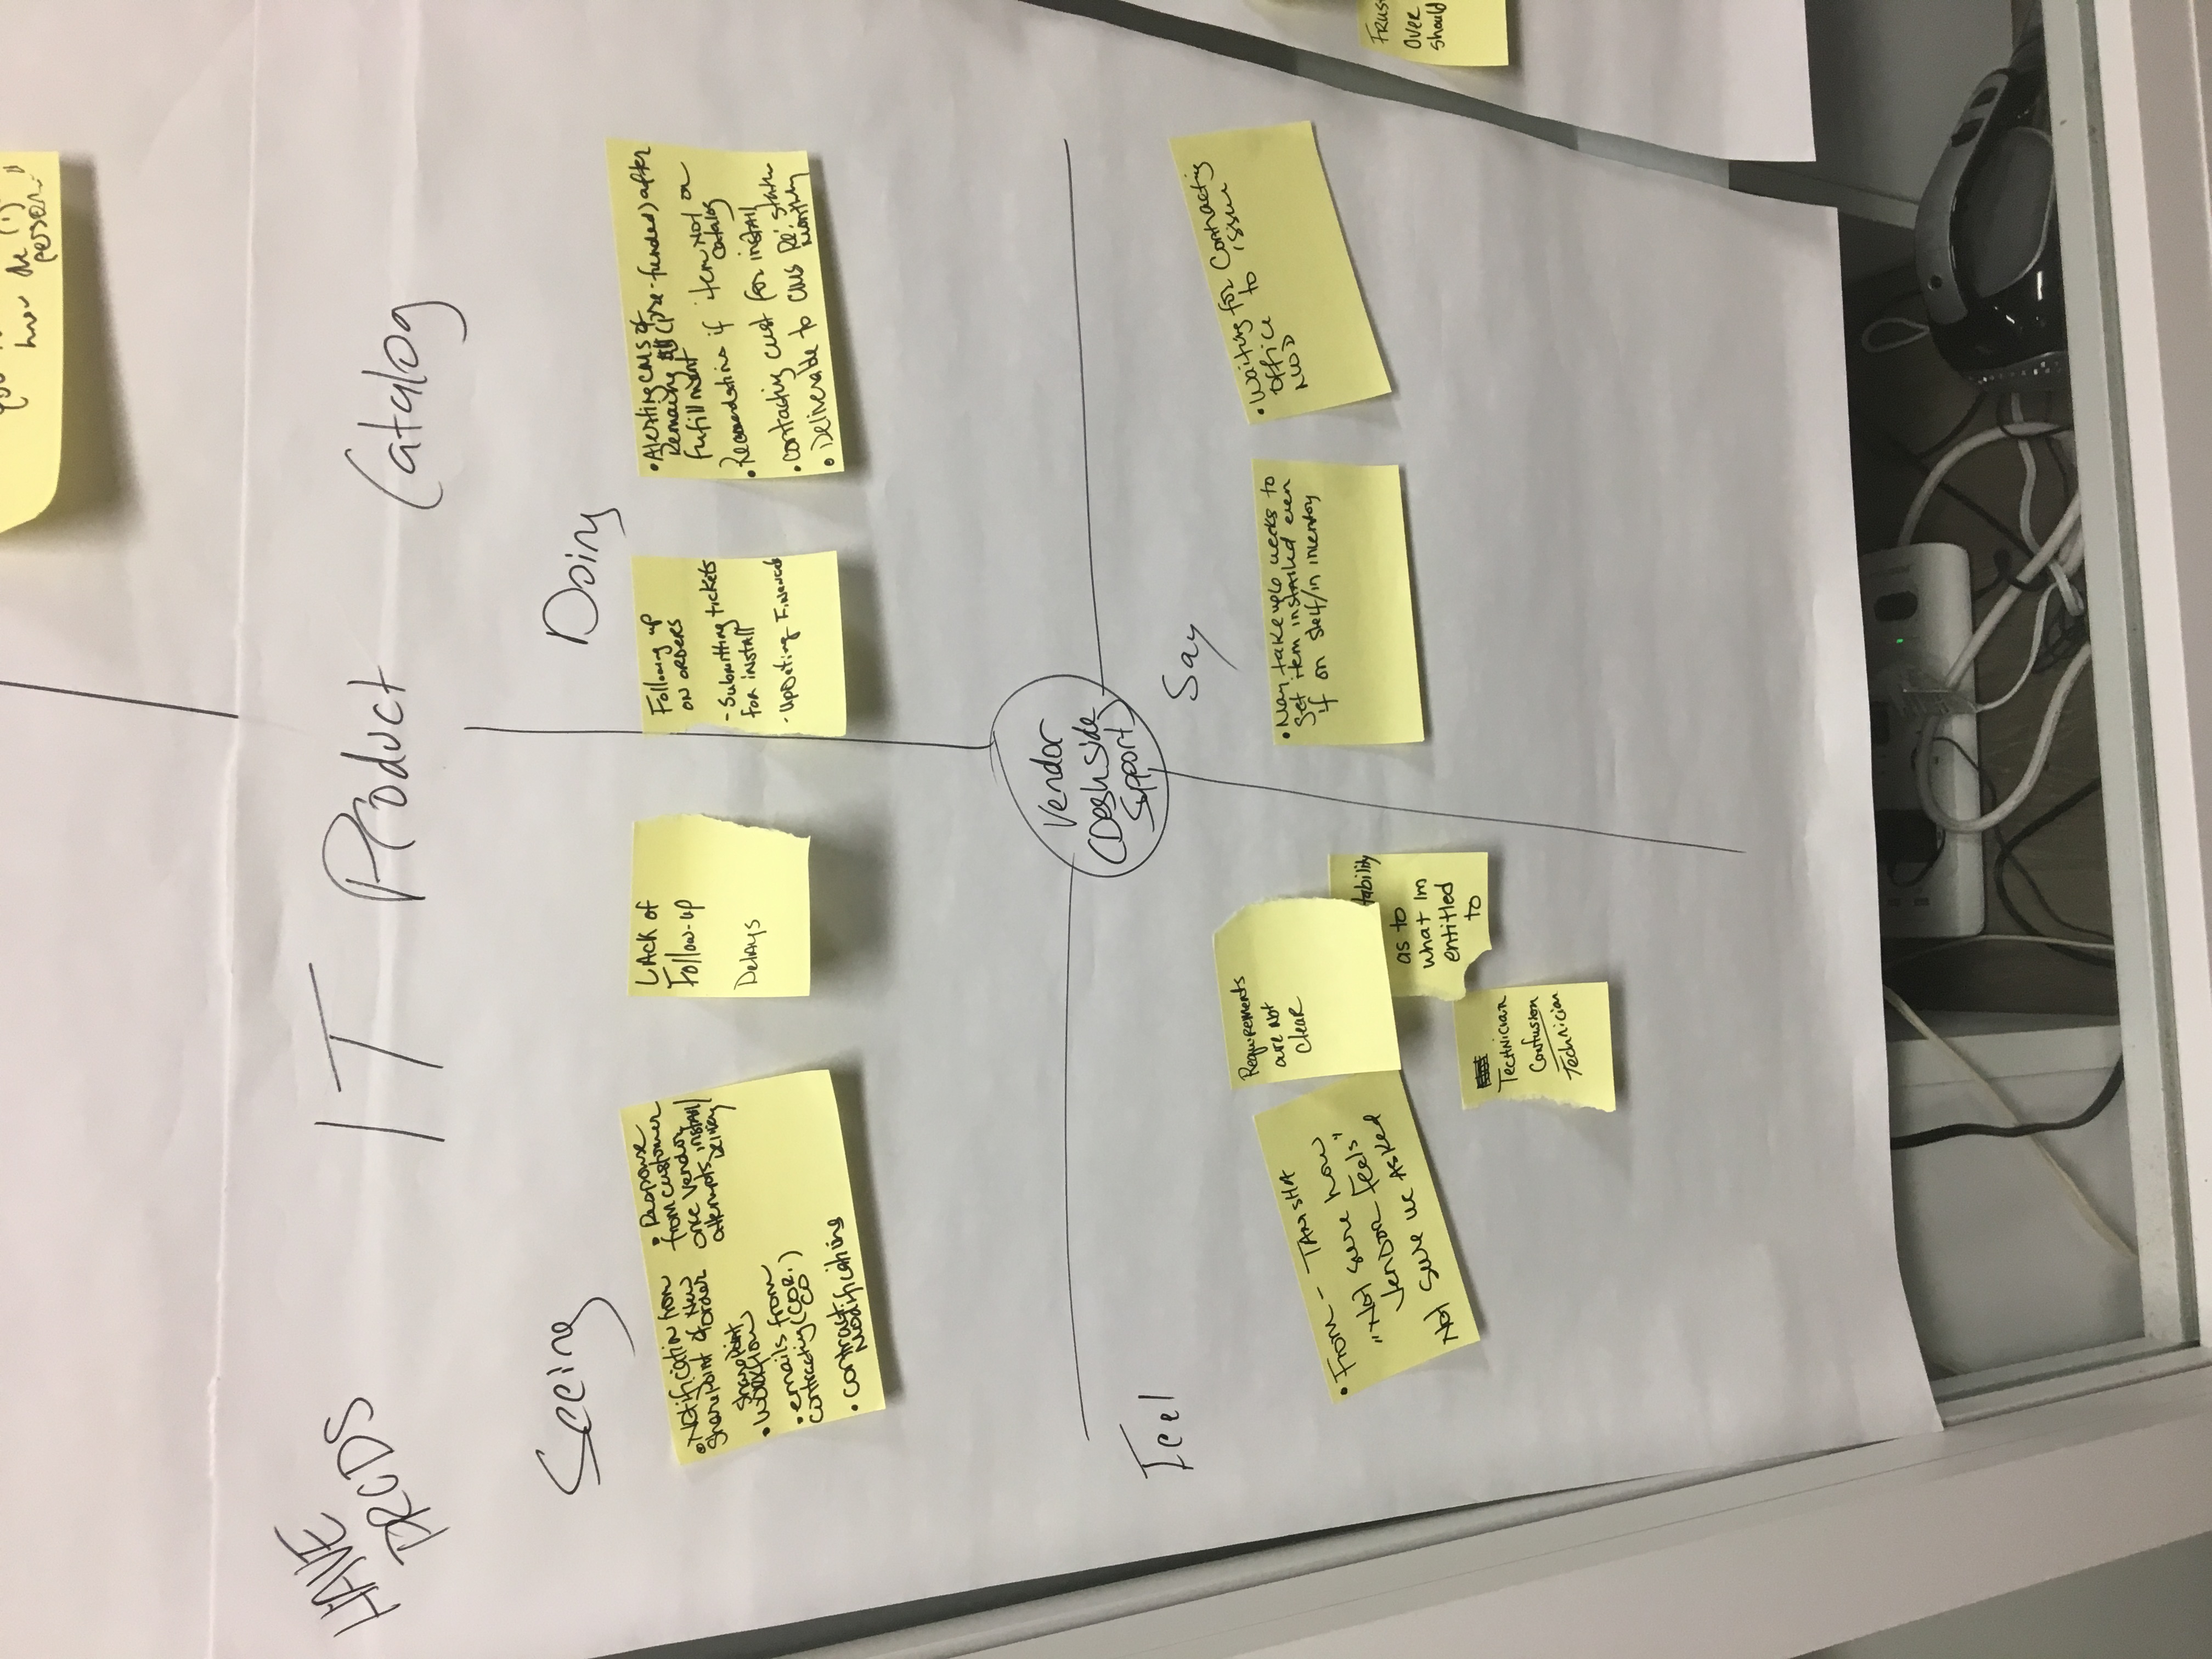 know the (1)
person"
HAVE
PRODS
IT Product Catalog
Seeing
• Notification from
SharePoint of New
order
SharePoint
• Workflow
• emails from
contracting (COR,
CO)
• contract
Modifications
• Response
from customer
once Vendor
attempts install/
Delivery
LAck of
Follow-up
Delays
Doing
Following up
ON ORDERS
- Submitting tickets
for install
- UpDating Financials
• Alerting CMS of
Remaing (pre-funded) after
fufillment
• if item Not on
catalog
• contacting cust for install
• Deliverable to CMS
Monthly
Vendor
(Deskside
Support)
Feel
• From - TANISHA
"Not sure how
Vendor Feels"
Not sure we Asked
Requirements
are not
clear
tability
as to
what Im
entitled
to
Technician
Confusion
Technician
Say
• May take up 6 weeks to
get item installed even
if on shelf/in inventory
• Waiting for Contracting
Office to issue
Frus
Over
should